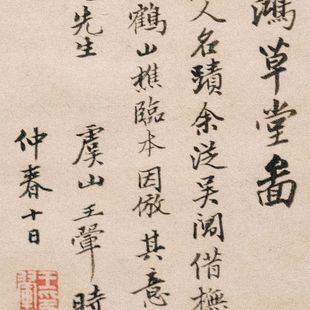 鴻草堂啚
人名蹟余從吴閶借橅
鶴山樵臨本因倣其意
先生 虞山王翬時
仲春十日